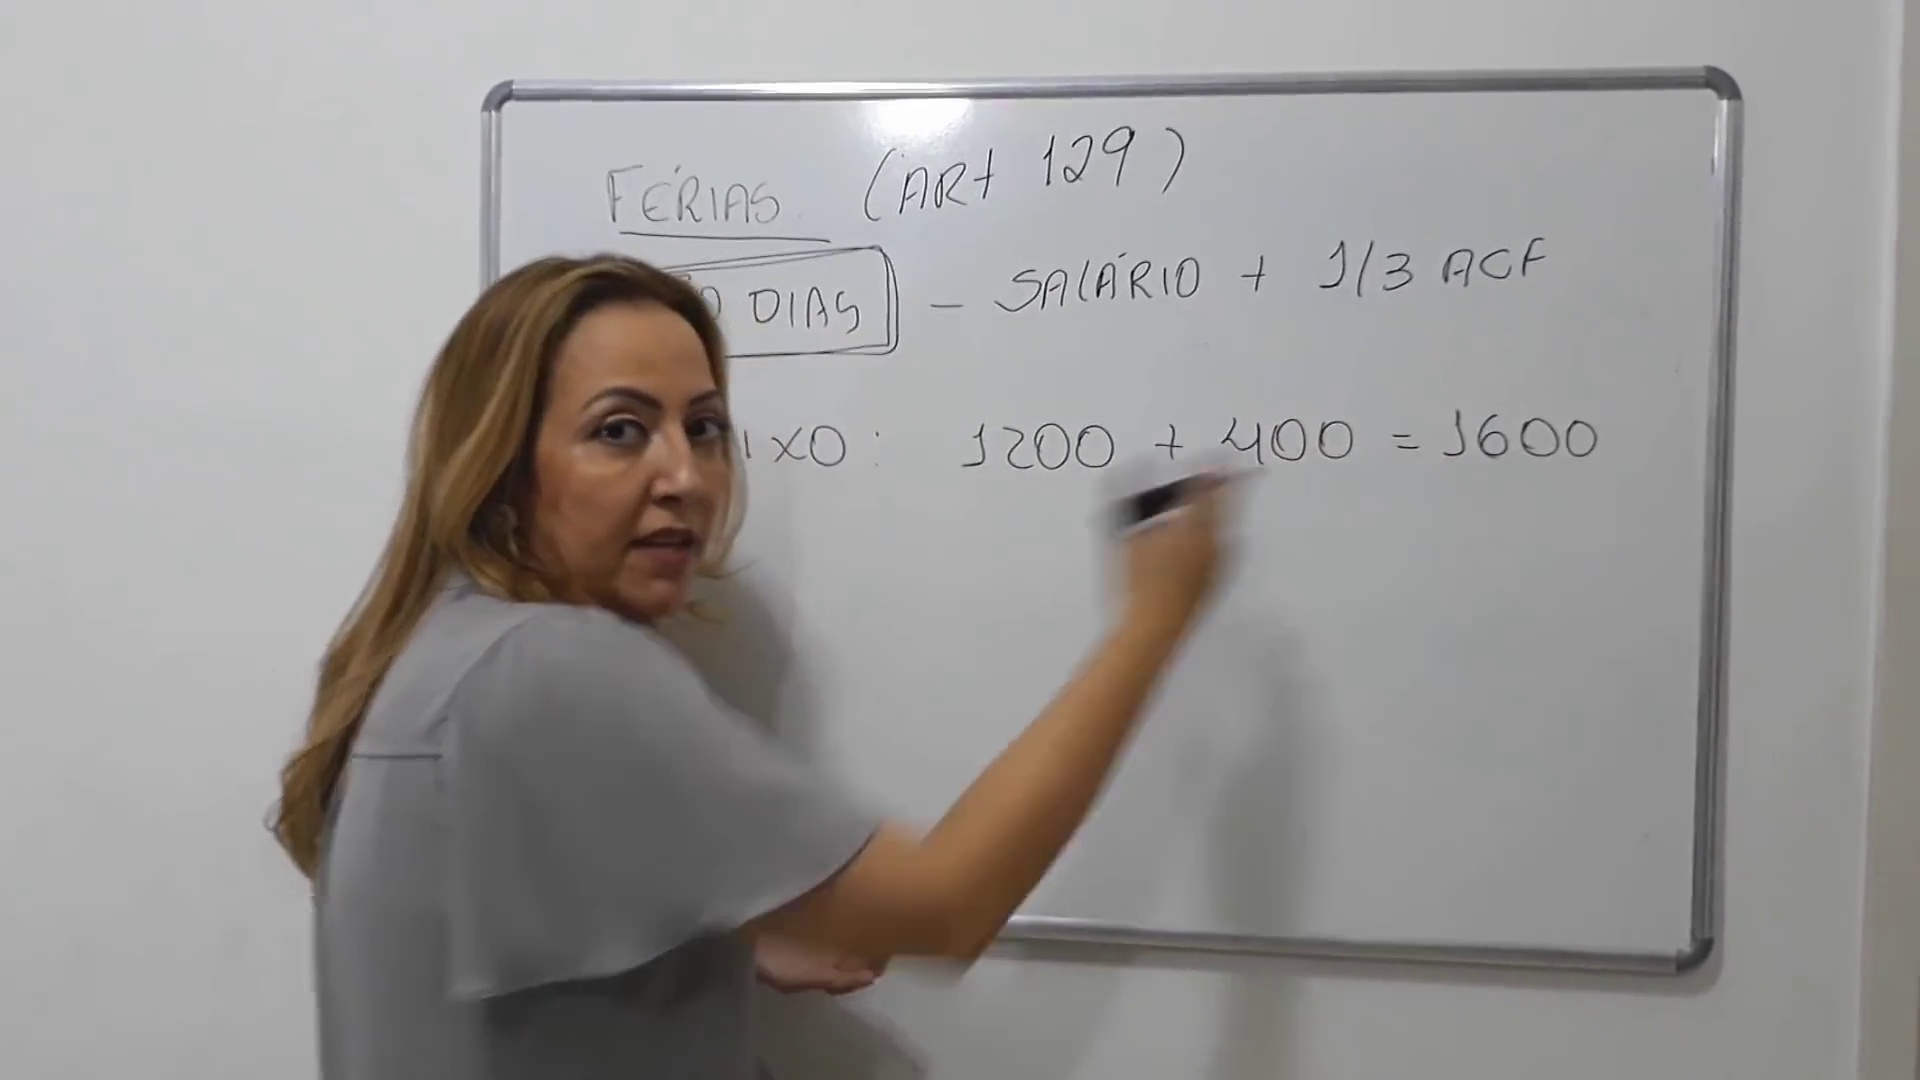 FÉRIAS (ART 129)
DIAS - SALÁRIO + 1/3 ACF
: 1200 + 400 = 1600